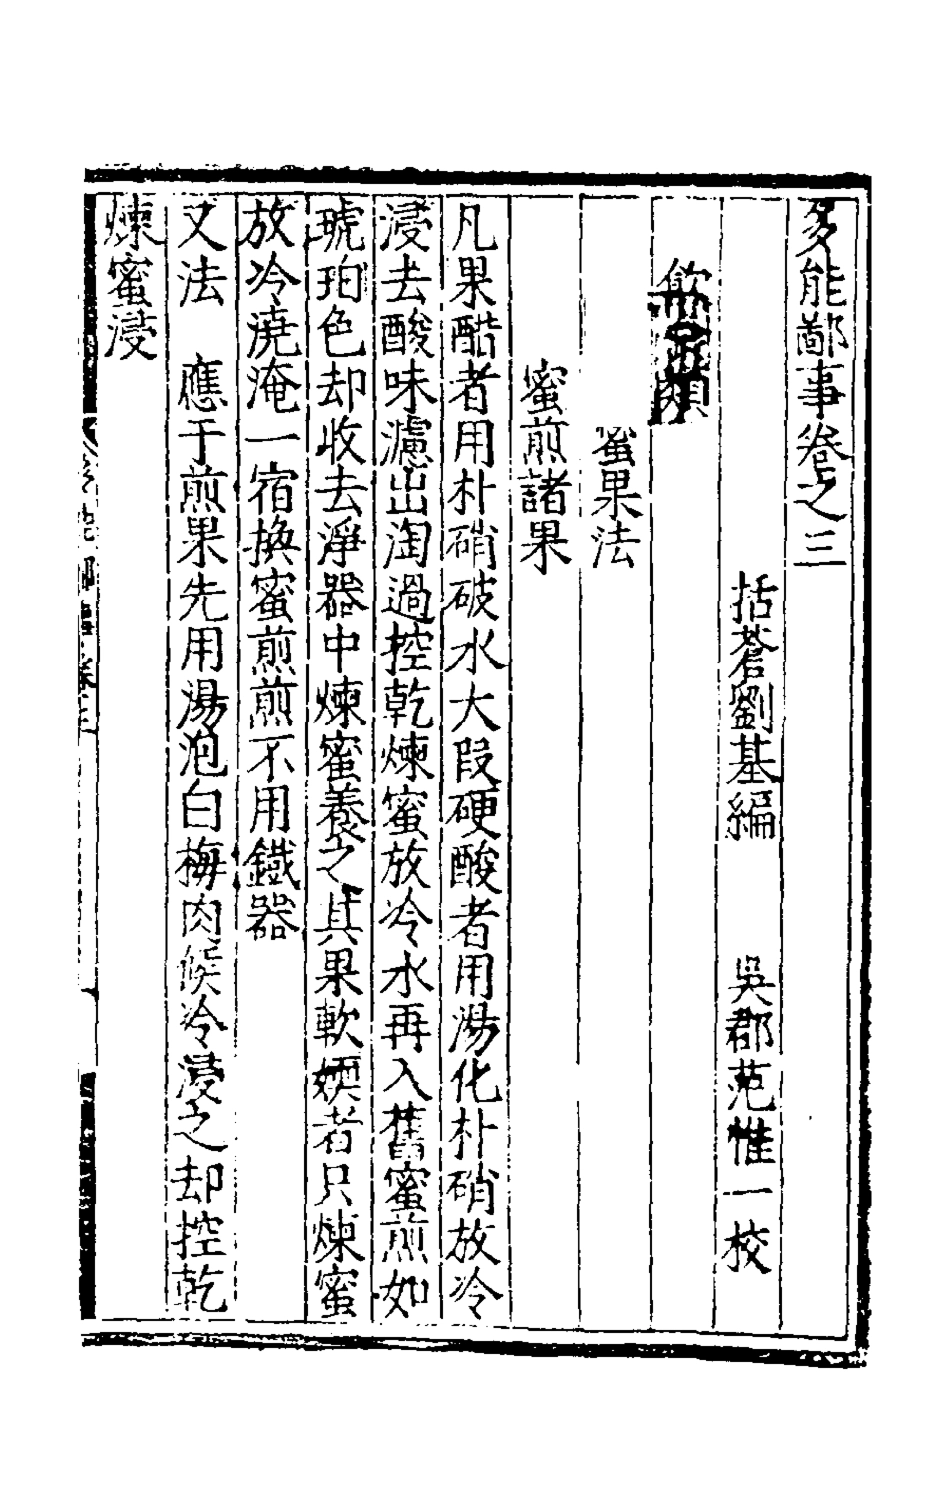 多能鄙事卷之三
括蒼劉基編　吳郡范惟一校
飲食類
蜜果法
蜜煎諸果
凡果酷者用朴硝破水大段硬酸者用湯化朴硝放冷
浸去酸味濾出淘過控乾煉蜜放冷水再入舊蜜煎如
琥珀色却收去淨器中煉蜜養之其果軟㛱者只煉蜜
放冷澆淹一宿換蜜煎煎不用鐵器
又法　應于煎果先用湯泡白梅肉候冷浸之却控乾
煉蜜浸